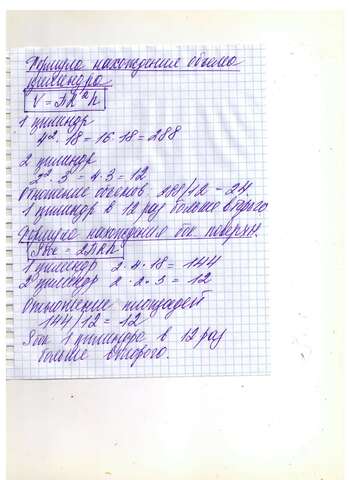 Формула нахождения объема
цилиндра
V = πR²h
1 цилиндр
4² · 18 = 16 · 18 = 288
2 цилиндр
2² · 3 = 4 · 3 = 12
Отношение объемов 288/12 = 24
1 цилиндр в 12 раз больше второго
Формула нахождения бок поверхн.
Sбок = 2πRh
1 цилиндр 2 · 4 · 18 = 144
2 цилиндр 2 · 2 · 3 = 12
Отношение площадей
144/12 = 12
Sбок 1 цилиндра в 12 раз
больше второго.